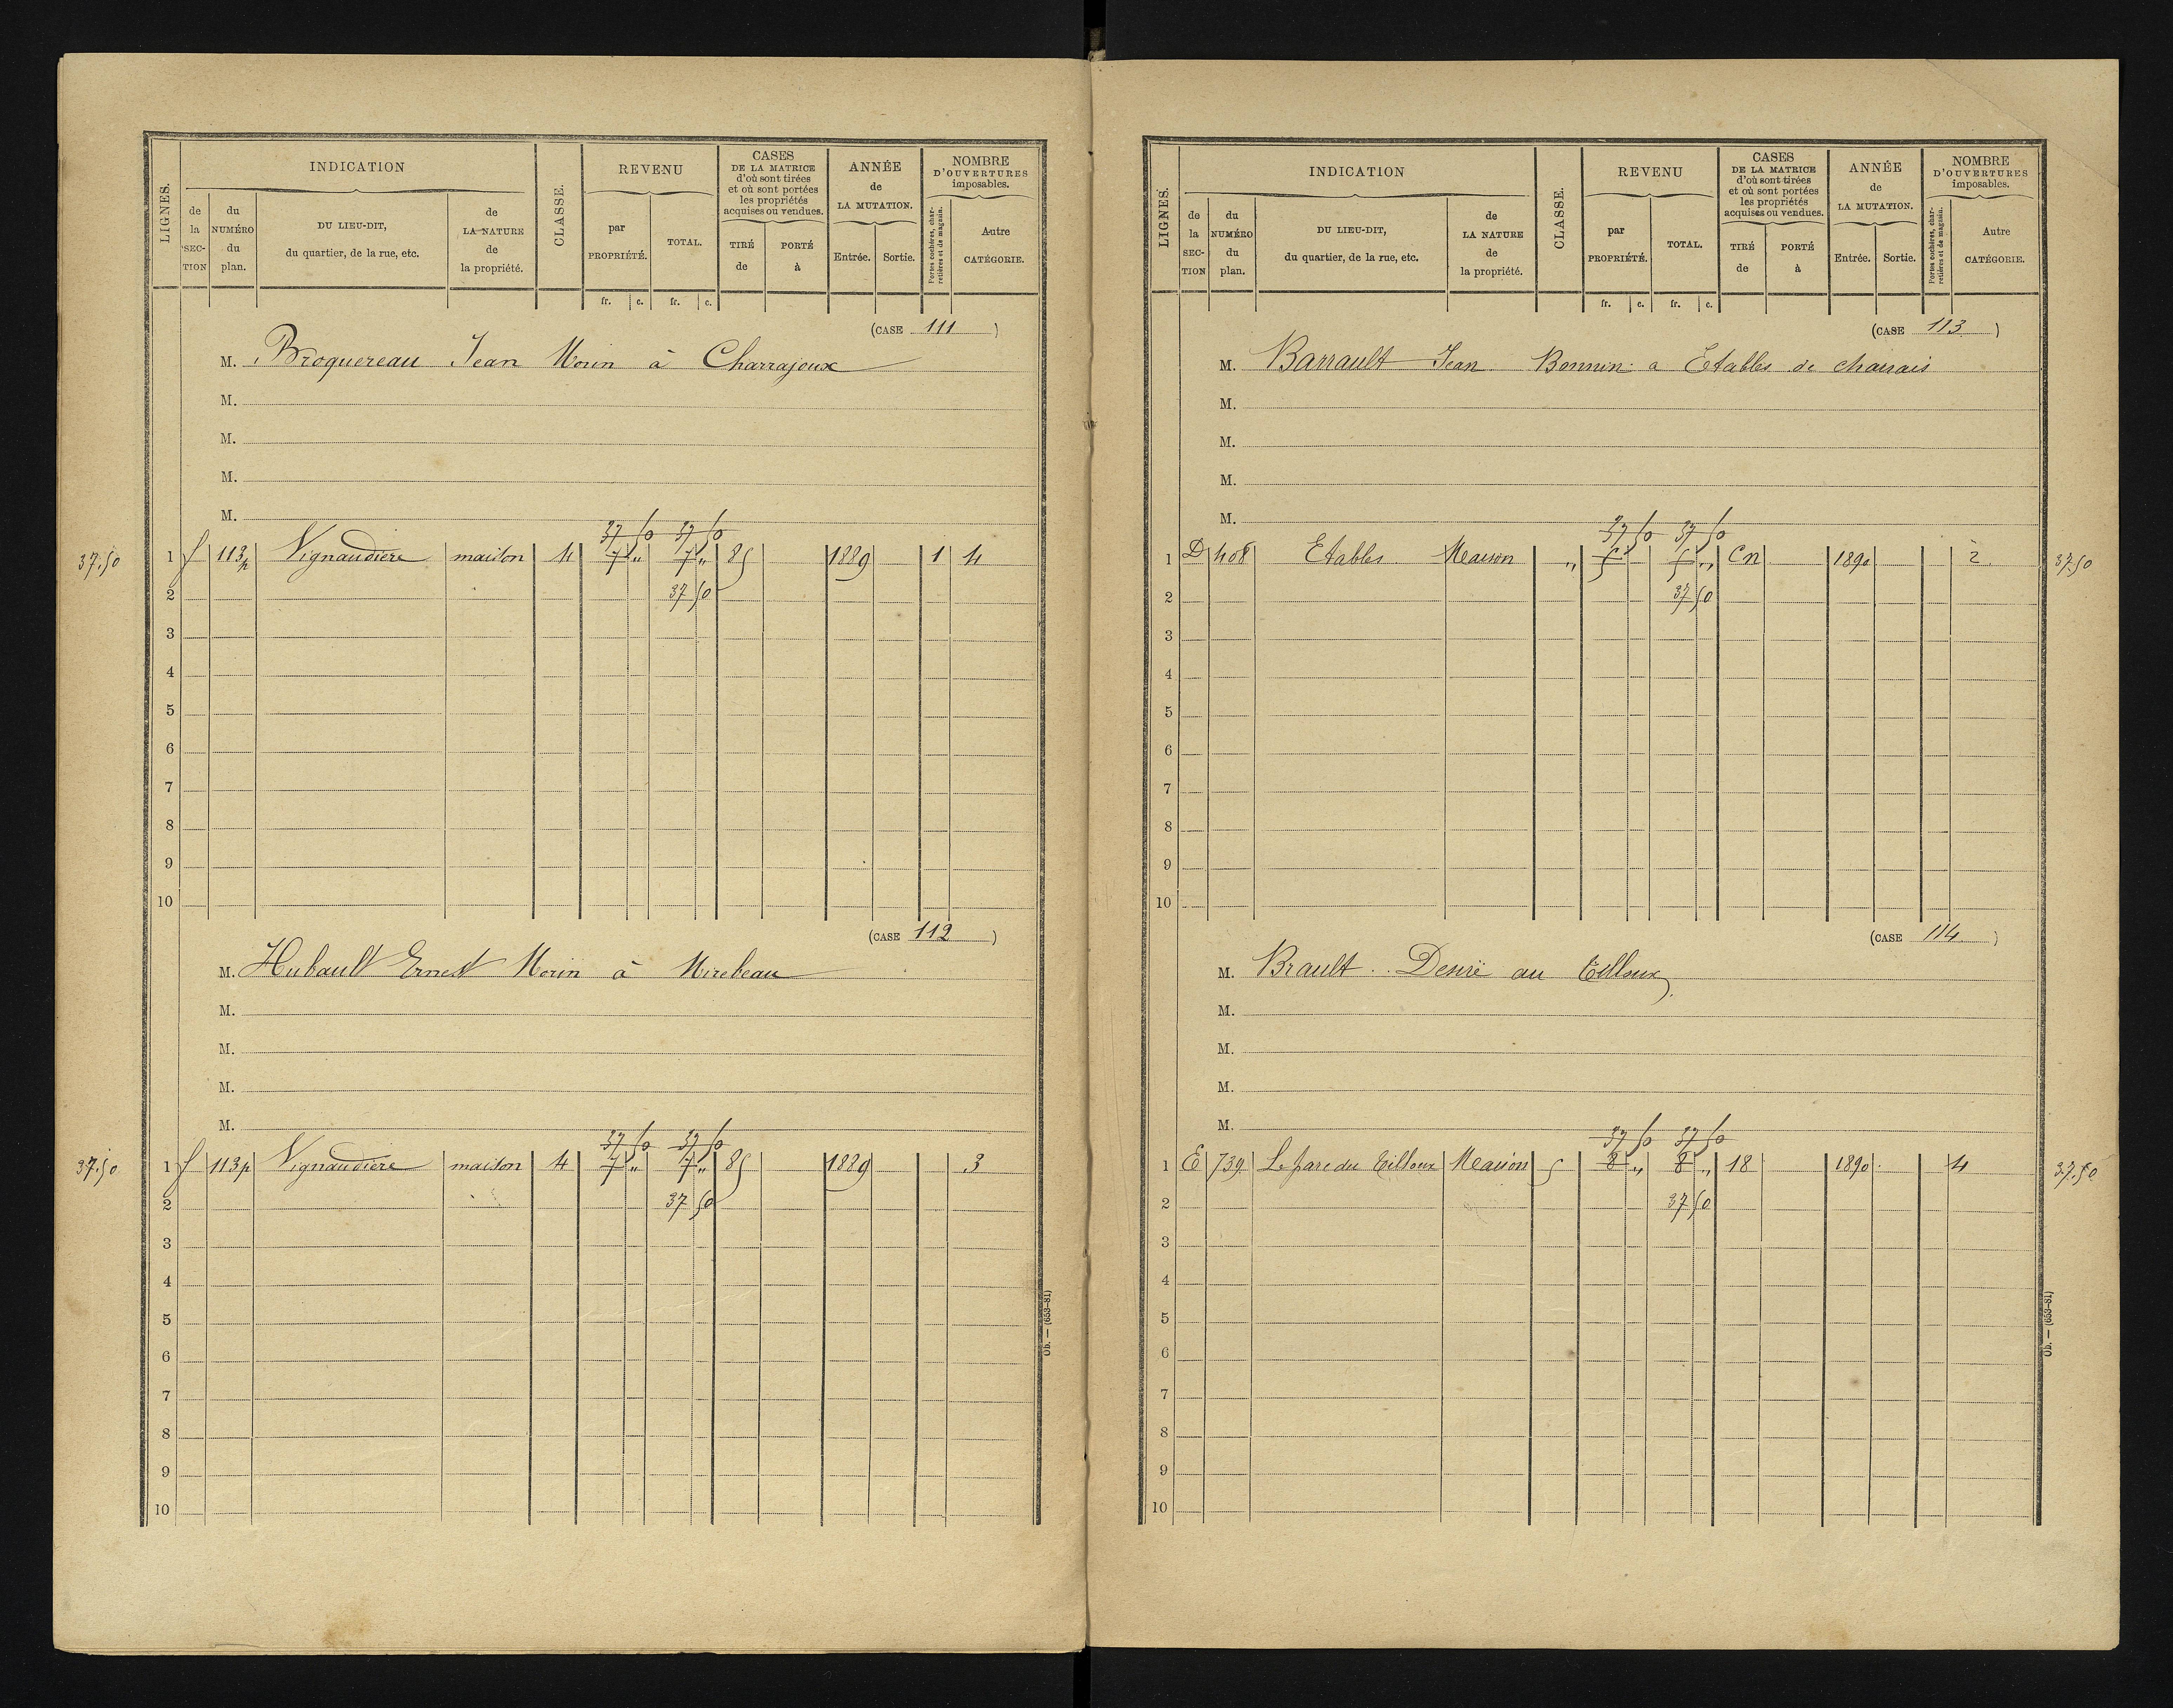 LIGNES.
INDICATION
de la SECTION
du NUMÉRO du plan.
DU LIEU-DIT, du quartier, de la rue, etc.
de LA NATURE de la propriété.
CLASSE.
REVENU
par PROPRIÉTÉ.
TOTAL.
fr. c. fr. c.
CASES DE LA MATRICE d'où sont tirées et où sont portées les propriétés acquises ou vendues.
TIRÉ de
PORTÉ à
ANNÉE de LA MUTATION.
Entrée. Sortie.
NOMBRE D'OUVERTURES imposables.
Portes cochères, charretières et de magasin.
Autre CATÉGORIE.
(CASE 111)
M. Broquereau Jean Morin à Charrajoux
M.
M.
M.
M.
37 50 37 50
37.50 1 f 113p Vignaudière maison 4 7 " 7 " 85 1889 1 4
2 37 50
3
4
5
6
7
8
9
10
(CASE 112)
M. Hubault Ernest Morin à Mirebeau
M.
M.
M.
M.
37 50 37 50
37.50 1 f 113p Vignaudière maison 4 7 " 7 " 85 1889 3
2 37 50
3
4
5
6
7
8
9
10
Ob. — (653-81)
LIGNES.
INDICATION
de la SECTION
du NUMÉRO du plan.
DU LIEU-DIT, du quartier, de la rue, etc.
de LA NATURE de la propriété.
CLASSE.
REVENU
par PROPRIÉTÉ.
TOTAL.
fr. c. fr. c.
CASES DE LA MATRICE d'où sont tirées et où sont portées les propriétés acquises ou vendues.
TIRÉ de
PORTÉ à
ANNÉE de LA MUTATION.
Entrée. Sortie.
NOMBRE D'OUVERTURES imposables.
Portes cochères, charretières et de magasin.
Autre CATÉGORIE.
(CASE 113)
M. Barrault Jean Bonnin a Etables de charrais
M.
M.
M.
M.
37 50 37 50
1 D 408 Etables Maison " 5 5 " Cn 1890 2 37.50
2 37 50
3
4
5
6
7
8
9
10
(CASE 114)
M. Brault Desiré au Tilloux
M.
M.
M.
M.
37 50 37 50
1 E 739 Le parc du Tilloux Maison 5 8 " 8 " 18 1890 4 37.50
2 37 50
3
4
5
6
7
8
9
10
Ob. — (653-81)